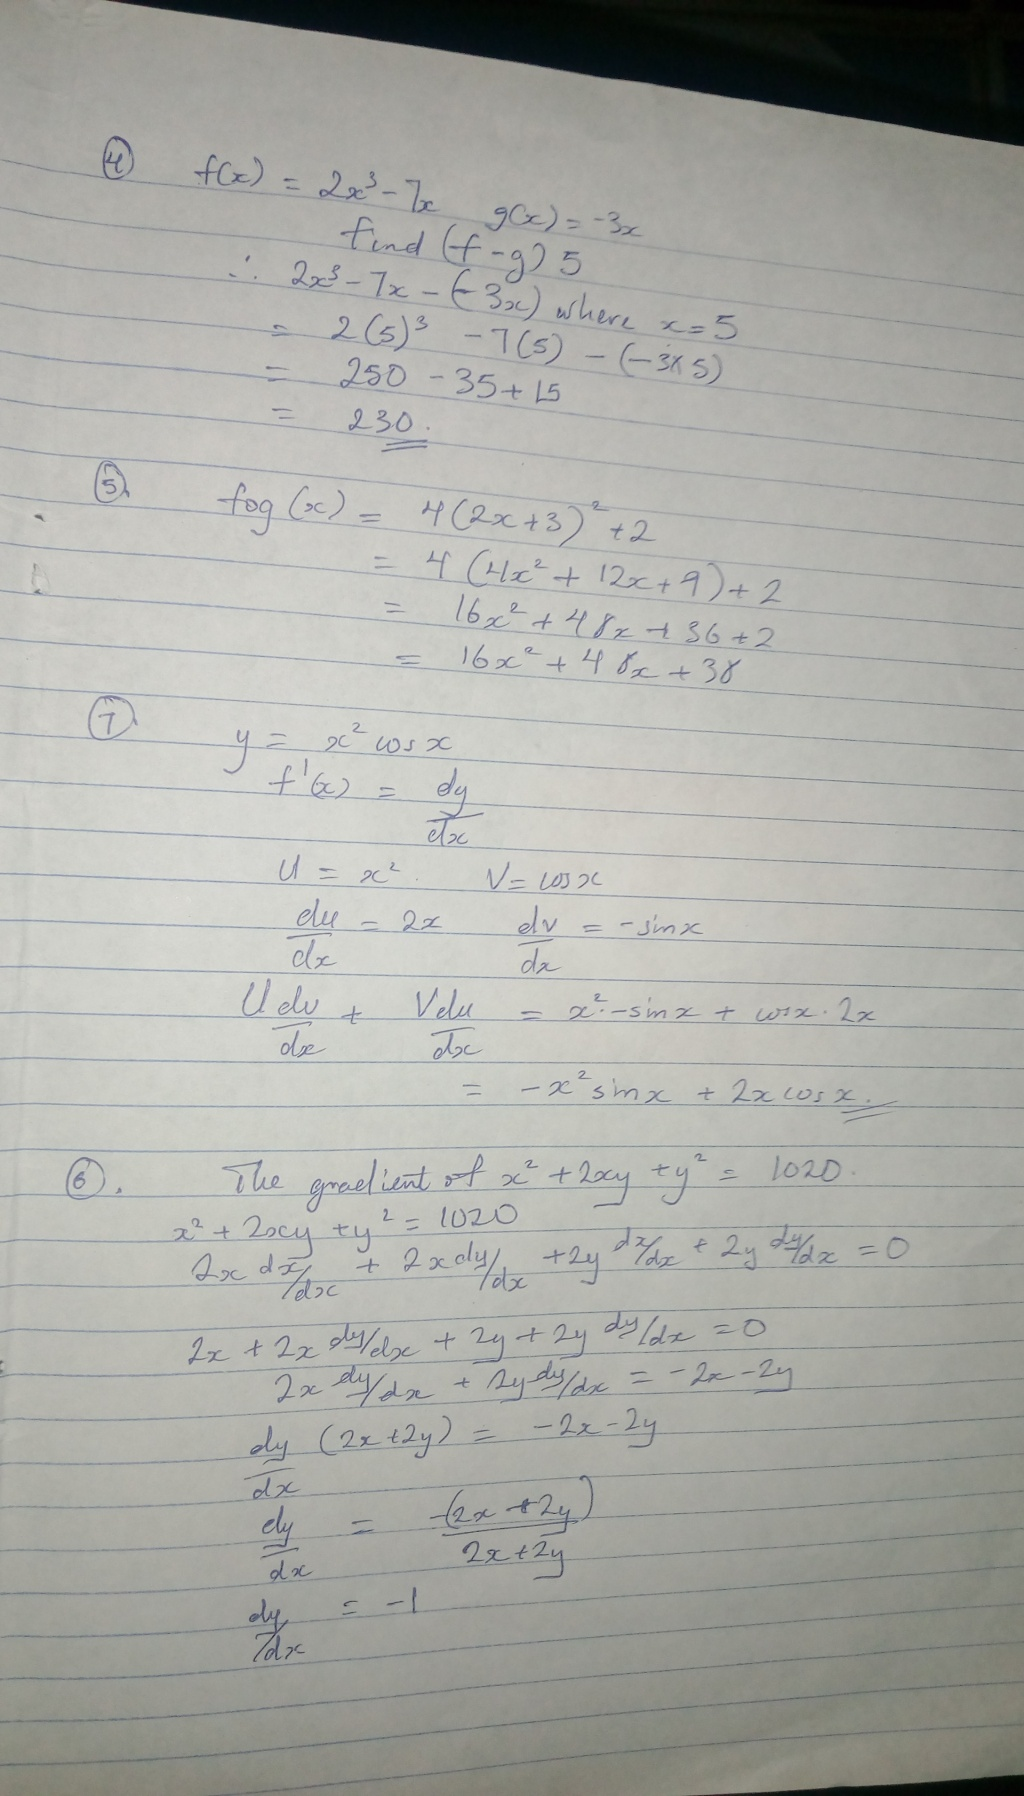 ④ f(x) = 2x³ - 7x g(x) = -3x
find (f - g) 5
∴ 2x³ - 7x - (-3x) where x = 5
= 2(5)³ - 7(5) - (-3×5)
= 250 - 35 + 15
= 230.
⑤. fog (x) = 4(2x+3)² + 2
= 4 (4x² + 12x + 9) + 2
= 16x² + 48x + 36 + 2
= 16x² + 48x + 38
⑦. y = x² cos x
f'(x) = dy/dx
U = x². V = cos x
du/dx = 2x dv/dx = -sin x
U dv/dx + V du/dx = x²·-sin x + cos x · 2x
= -x² sin x + 2x cos x.
⑥. The gradient of x² + 2xy + y² = 1020.
x² + 2xy + y² = 1020
2x dx/dx + 2x dy/dx + 2y dx/dx + 2y dy/dx = 0
2x + 2x dy/dx + 2y + 2y dy/dx = 0
2x dy/dx + 2y dy/dx = -2x - 2y
dy/dx (2x + 2y) = -2x - 2y
dy/dx = -(2x + 2y)/2x + 2y
dy/dx = -1